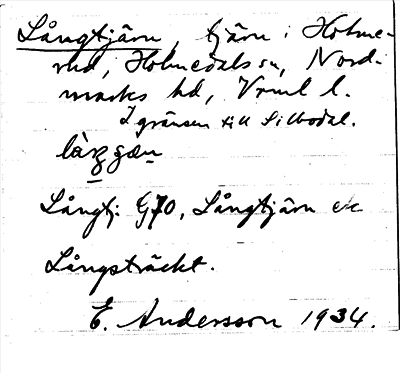 Långtjärn, tjärn i Holme-
rud, Holmedals sn, Nord-
marks hd, Vrml l.
I gränsen till Silbodal.
Långtj: G70, Långtjärn ek
Långsträckt.
E. Andersson 1934.